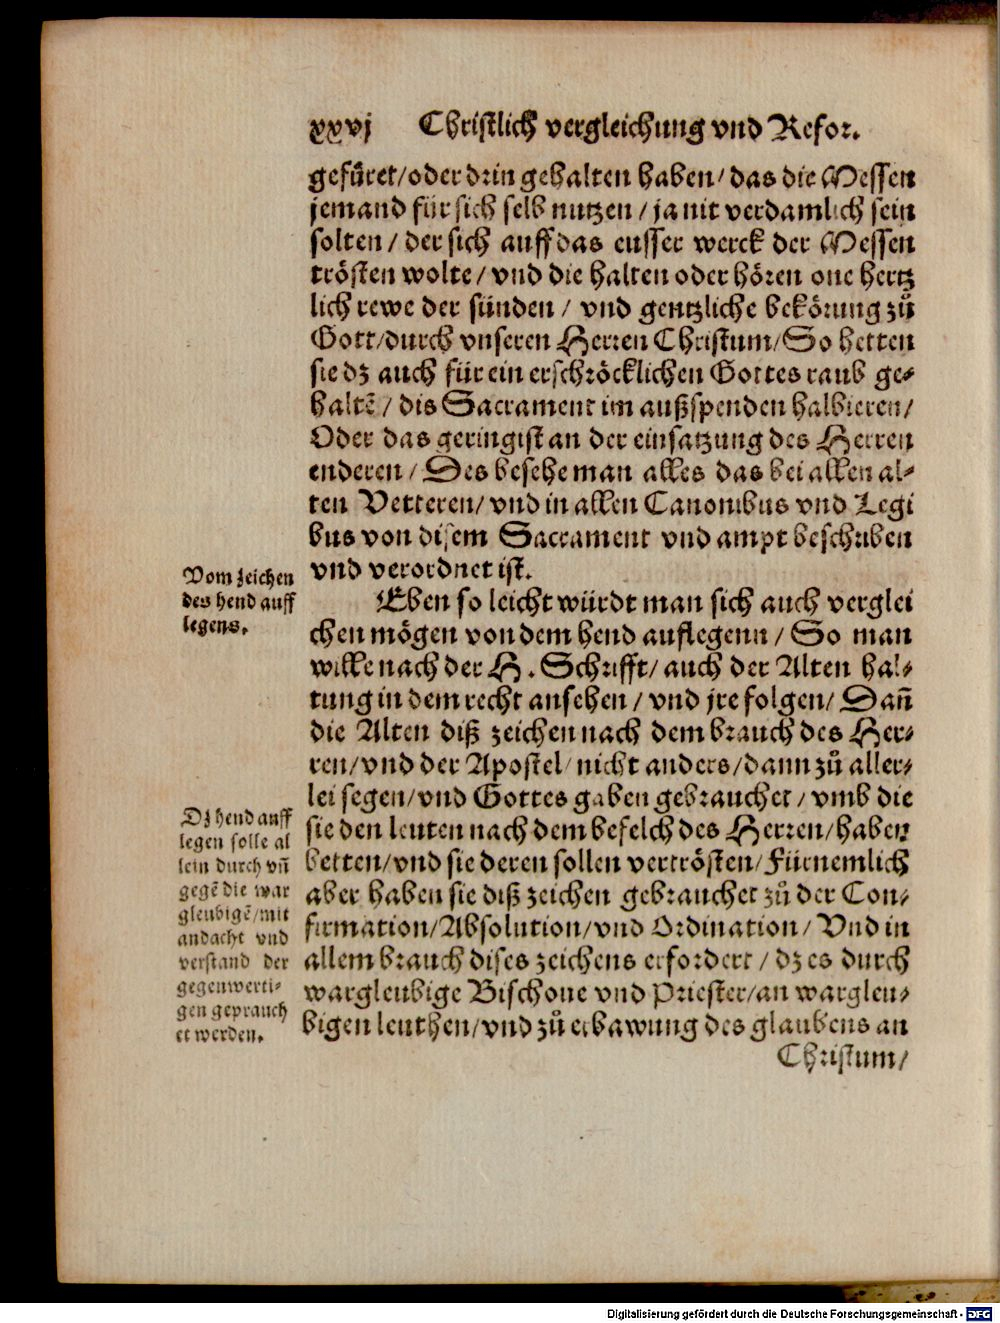 xxvj Christlich vergleichung vnd Refor.
gefüret/oder drin gehalten haben/ das die Messen
jemand für sich selb nutzen / ja nit verdamlich sein
solten / der sich auff das eusser werck der Messen
trösten wolte/ vnd die halten oder hören one hertz
lich rewe der sünden / vnd gentzliche bekörung zů
Gott/durch vnseren Herren Christum/So hetten
sie dz auch für ein erschröcklichen Gottes raub ge-
haltẽ / dis Sacrament im außspenden halbieren/
Oder das geringist an der einsatzung des Herren
enderen / Des besehe man alles das bei allen al-
ten Vetteren/ vnd in allen Canonibus vnd Legi
bus von disem Sacrament vnd ampt beschriben
vnd verordnet ist.
Vom zeichen
des hend auff
legens.
Eben so leicht würdt man sich auch verglei
chen mögen von dem hend auflegenn / So man
wille nach der H. Schrifft/ auch der Alten hal-
tung in dem recht ansehen / vnd jre folgen/ Dañ
die Alten diß zeichen nach dem brauch des Her-
ren/vnd der Apostel/ nicht anders/dann zů aller-
lei segen/vnd Gottes gaben gebrauchet / vmb die
sie den leuten nach dem befelch des Herren/haben
betten/vnd sie deren sollen vertrösten/Fürnemlich
aber haben sie diß zeichen gebrauchet zů der Con-
firmation/Absolution/vnd Ordination/ Vnd in
allem brauch dises zeichens erfordert / dz es durch
wargleubige Bischoue vnd Priester/an wargleu-
bigen leuthen/vnd zů erbawung des glaubens an
Christum/
Dz hend auff
legen solle al
lein durch vñ
gegẽ die war
gleubigẽ/mit
andacht vnd
verstand der
gegenwerti-
gen geprauch
et werden.
Digitalisierung gefördert durch die Deutsche Forschungsgemeinschaft - DFG